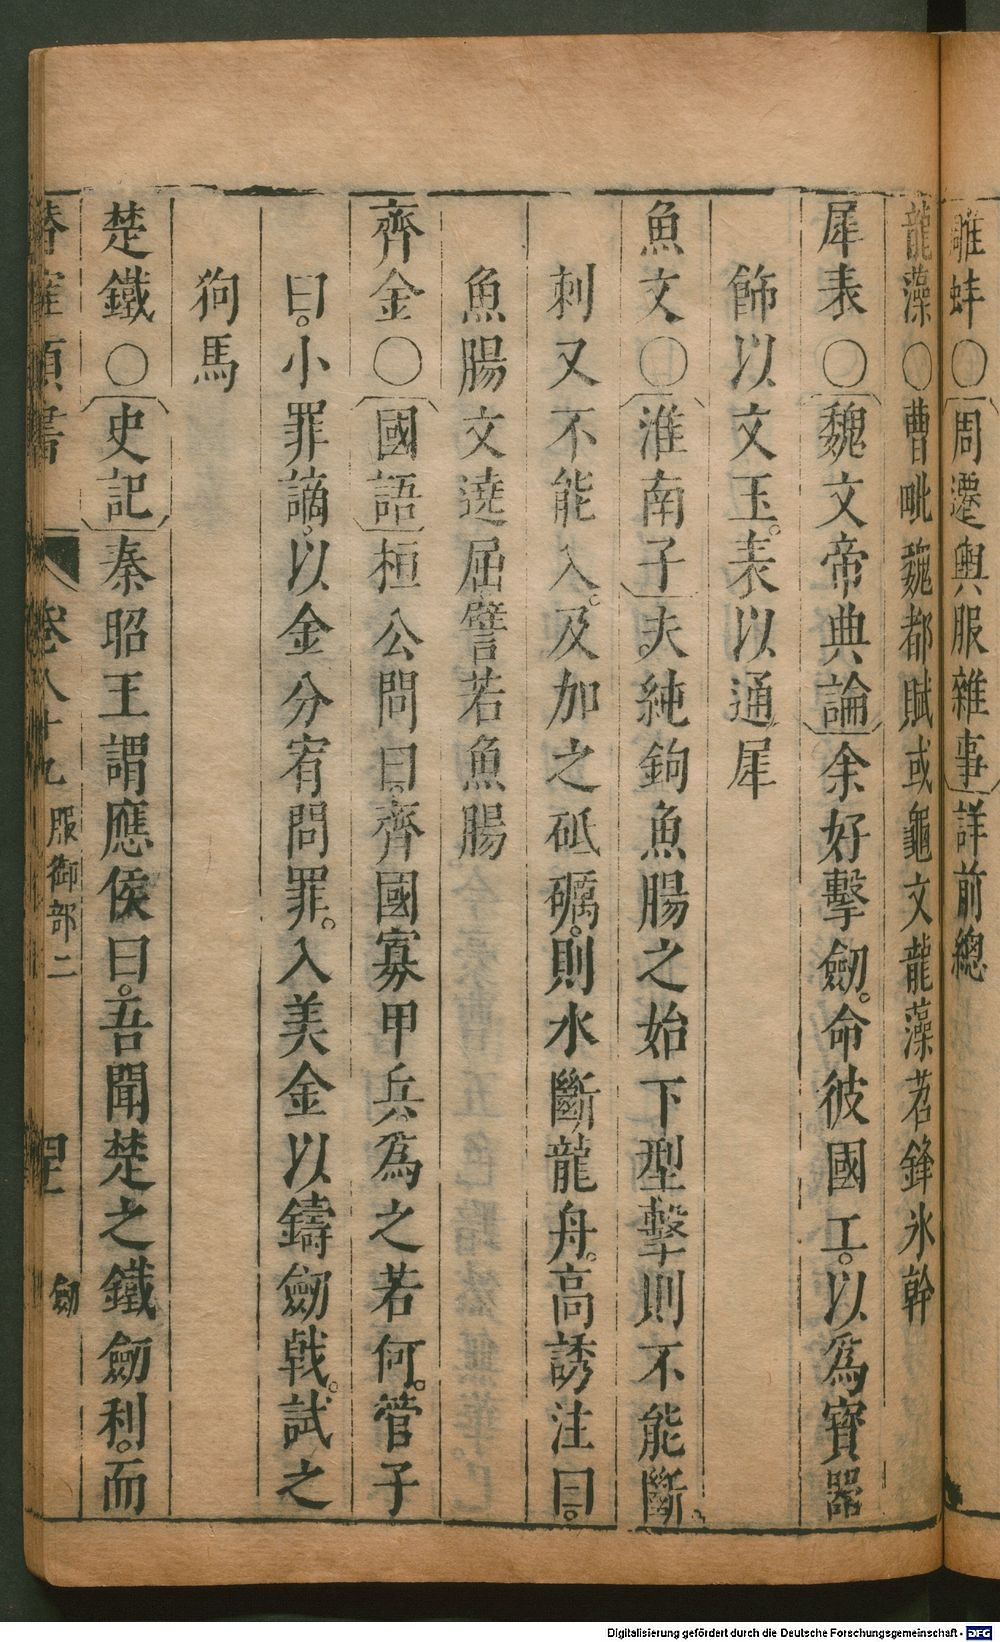 雕蚌○周遷輿服雜事詳前總
龍藻○曹毗魏都賦或龜文龍藻若鋒氷幹
犀表○魏文帝典論余好擊劒。命彼國工。以爲寶器
飾以文玉。表以通犀
魚文○淮南子夫純鉤魚腸之始下型擊則不能斷、
刺又不能入。及加之砥礪。則水斷龍舟。高誘注曰。
魚腸文遶屈譬若魚腸
齊金○國語桓公問曰。齊國寡甲兵。爲之若何。管子
曰。小罪謫。以金分宥問罪。入美金以鑄劒戟。試之
狗馬
楚鐵○史記秦昭王謂應侯曰。吾聞楚之鐵劒利。而
卷八十九 服御部二 劒
Digitalisierung gefördert durch die Deutsche Forschungsgemeinschaft - DFG